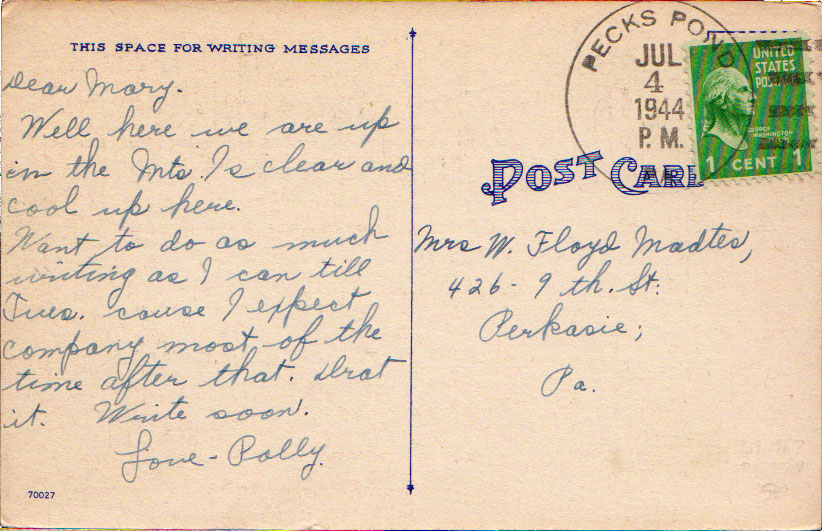 THIS SPACE FOR WRITING MESSAGES
Dear Mary.
Well here we are up
in the Mts. Is clear and
cool up here.
Want to do as much
writing as I can till
Tues. cause I expect
company most of the
time after that. Drat
it. Write soon.
Love - Polly.
70027
PECKS POND
JUL
4
1944
P. M.
UNITED
STATES
POSTAGE
GEORGE
WASHINGTON
1 CENT 1
POST CARD
Mrs W. Floyd Madtes,
426 - 9 th. St.
Perkasie,
Pa.